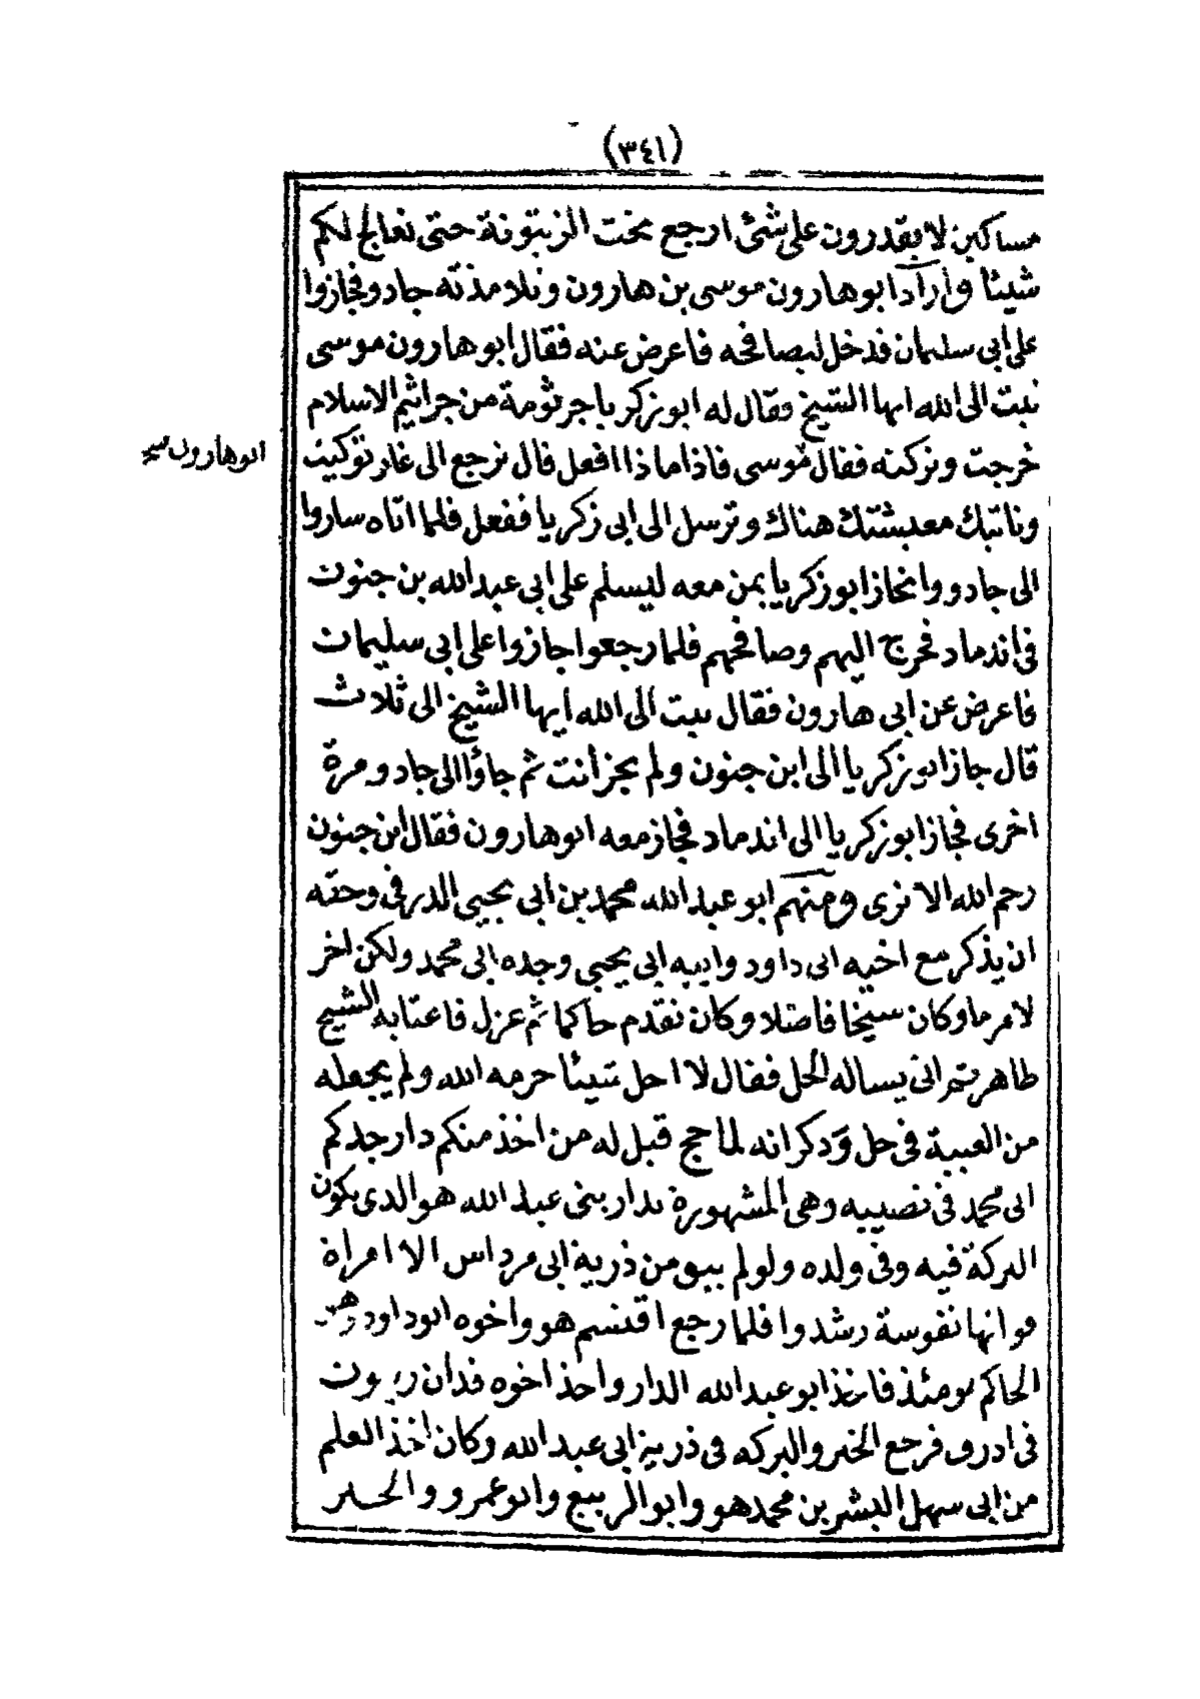 (٣٤١)
مساكين لا يقدرون على شئ ارجع تحت الزيتونة حتى نعالج لكم
شيئا وأراد ابو هارون موسى بن هارون وتلامذته جادو فجازوا
على ابى سليمان فدخل ليصافحه فاعرض عنه فقال ابو هارون موسى
تبت الى الله ايها الشيخ فقال له ابو زكريا جرثومة من جراثيم الاسلام
خرجت وتركته فقال موسى فاذا ماذا افعل قال نرجع الى غار توكيت
ابو هارون نسخه
وناتيك معيشتك هناك وترسل الى ابى زكريا ففعل فلما اتاه ساروا
الى جادو وانحاز ابو زكريا بمن معه ليسلم على ابى عبد الله بن جنون
فى اندماد فخرج اليهم وصافحهم فلما رجعوا اجازوا على ابى سليمان
فاعرض عن ابى هارون فقال تبت الى الله ايها الشيخ الى ثلاث
قال جاز ابو زكريا الى ابن جنون ولم يجز انت ثم جاؤا الى جادو مرة
اخرى فجاز ابو زكريا الى اندماد فجاز معه ابو هارون فقال ابن جنون
رحم الله الا نرى ومنهم ابو عبد الله محمد بن ابى يحيى الدرفى وحقه
ان يذكر مع اخيه ابى داود وابيه ابى يحيى وجده ابى محمد ولكن اخر
لامر ما وكان شيخا فاضلا وكان تقدم حاكما ثم عزل فاغتابه الشيخ
طاهر ثم اتى يساله الحل فقال لا احل شيئا حرمه الله ولم يجعله
من الغيبة فى حل وذكر انه لما حج قيل له من اخذ منكم دار جدكم
ابى محمد فى نصيبه وهى المشهورة بدار بنى عبد الله هو الذى يكون
البركة فيه وفى ولده ولو لم يبق من ذرية ابى مرداس الا امراة
هو انها نفوسة رشدوا فلما رجع اقتسم هو واخوه ابو داود وهو
الحاكم يومئذ فاخذ ابو عبد الله الدار واخذ اخوه فدان زيتون
فى ادرف فرجع الخير والبركه فى ذرية ابى عبد الله وكان اخذ العلم
من ابى سهل البشر بن محمد هو وابو الربيع وابو عمرو والحسن